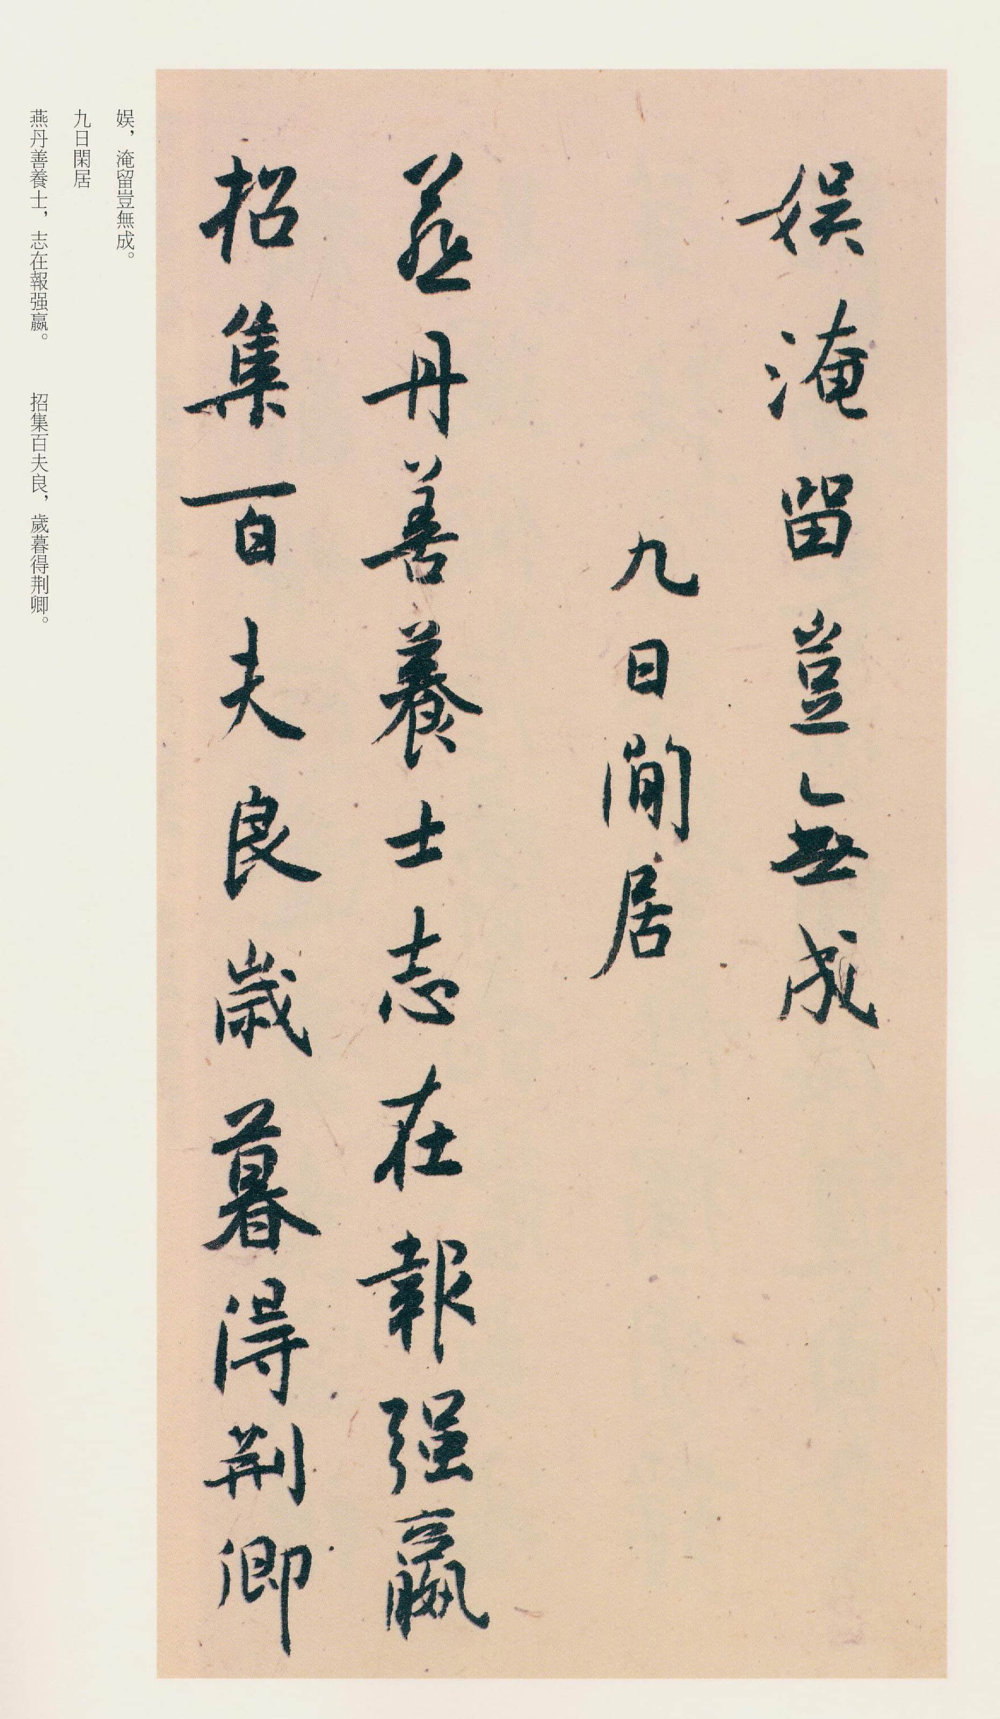 娱淹留豈無成
九日閑居
燕丹善養士志在報强嬴
招集百夫良歲暮得荆卿
娱，淹留豈無成。
九日閑居
燕丹善養士，志在報强嬴。 招集百夫良，歲暮得荆卿。